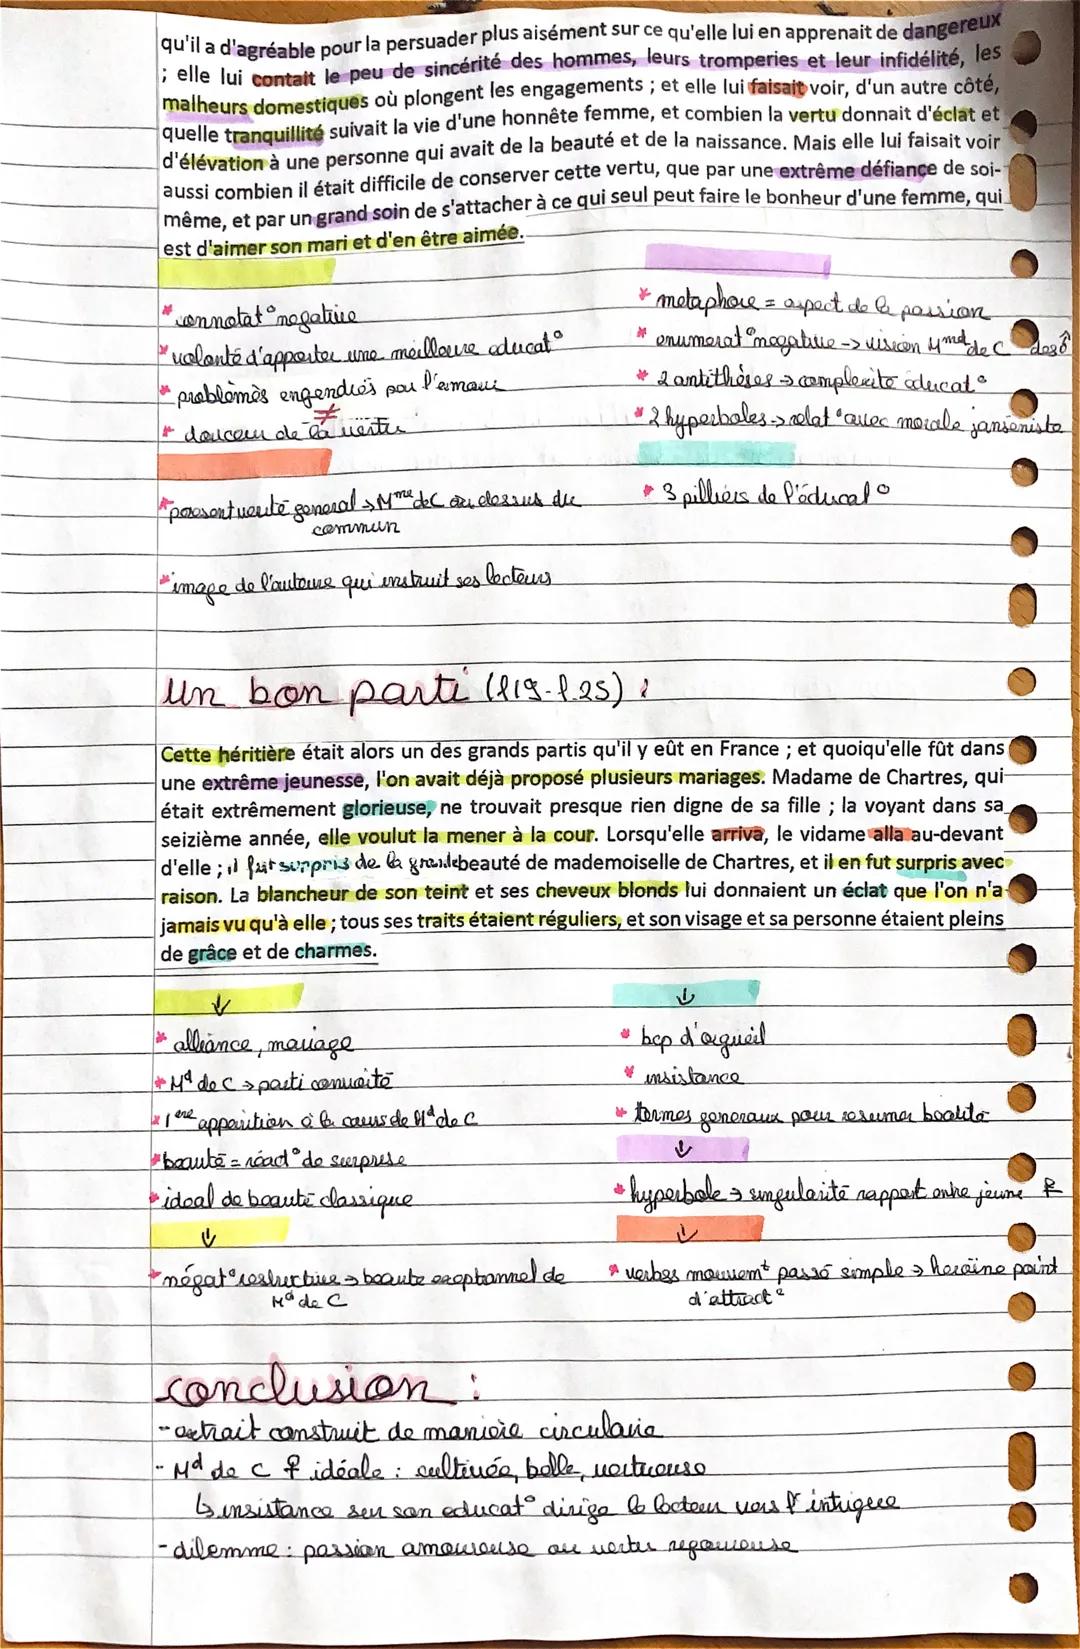 qu'il a d'agréable pour la persuader plus aisément sur ce qu'elle lui en apprenait de dangereux
; elle lui contait le peu de sincérité des hommes, leurs tromperies et leur infidélité, les
malheurs domestiques où plongent les engagements ; et elle lui faisait voir, d'un autre côté,
quelle tranquillité suivait la vie d'une honnête femme, et combien la vertu donnait d'éclat et
d'élévation à une personne qui avait de la beauté et de la naissance. Mais elle lui faisait voir
aussi combien il était difficile de conserver cette vertu, que par une extrême défiance de soi-
même, et par un grand soin de s'attacher à ce qui seul peut faire le bonheur d'une femme, qui
est d'aimer son mari et d'en être aimée.
* connotat° negative
* volonté d'apporter une meilleure educat°
* problèmes engendrés par l'amour
≠
* douceur de la vertu
* metaphore = aspect de la passion
* enumerat° negative -> vision Mmd de C des ♂
* 2 antithèses -> complexité educat°
* 2 hyperboles -> relat° avec morale janséniste
* present verité general -> Mme de C au dessus du
commun
* image de l'auteure qui instruit ses lecteurs
* 3 pilliers de l'éducat°
un bon parti (l19-l.25) :
Cette héritière était alors un des grands partis qu'il y eût en France ; et quoiqu'elle fût dans
une extrême jeunesse, l'on avait déjà proposé plusieurs mariages. Madame de Chartres, qui
était extrêmement glorieuse, ne trouvait presque rien digne de sa fille ; la voyant dans sa
seizième année, elle voulut la mener à la cour. Lorsqu'elle arriva, le vidame alla au-devant
d'elle ; il fut surpris de la grande beauté de mademoiselle de Chartres, et il en fut surpris avec
raison. La blancheur de son teint et ses cheveux blonds lui donnaient un éclat que l'on n'a
jamais vu qu'à elle ; tous ses traits étaient réguliers, et son visage et sa personne étaient pleins
de grâce et de charmes.
* alliance, mariage
* Md de C -> parti convoité
* 1ère apparition à la cours de Md de C
* beauté = réact° de surprise
* ideal de beauté classique
* bcp d'orgueil
* insistance
* termes generaux pour resumer beauté
* hyperbole -> singularité rapport entre jeune F
* négat° restrictive -> beaute exeptionnel de
Md de C
* verbes mouvemt passé simple -> heroïne point
d'attract°
conclusion :
- extrait construit de manière circulaire
- Md de C ♀ idéale : cultivée, belle, vertueuse
↳ insistance sur son educat° dirige le lecteur vers l'intrigue
- dilemme : passion amoureuse ou vertu rigoureuse